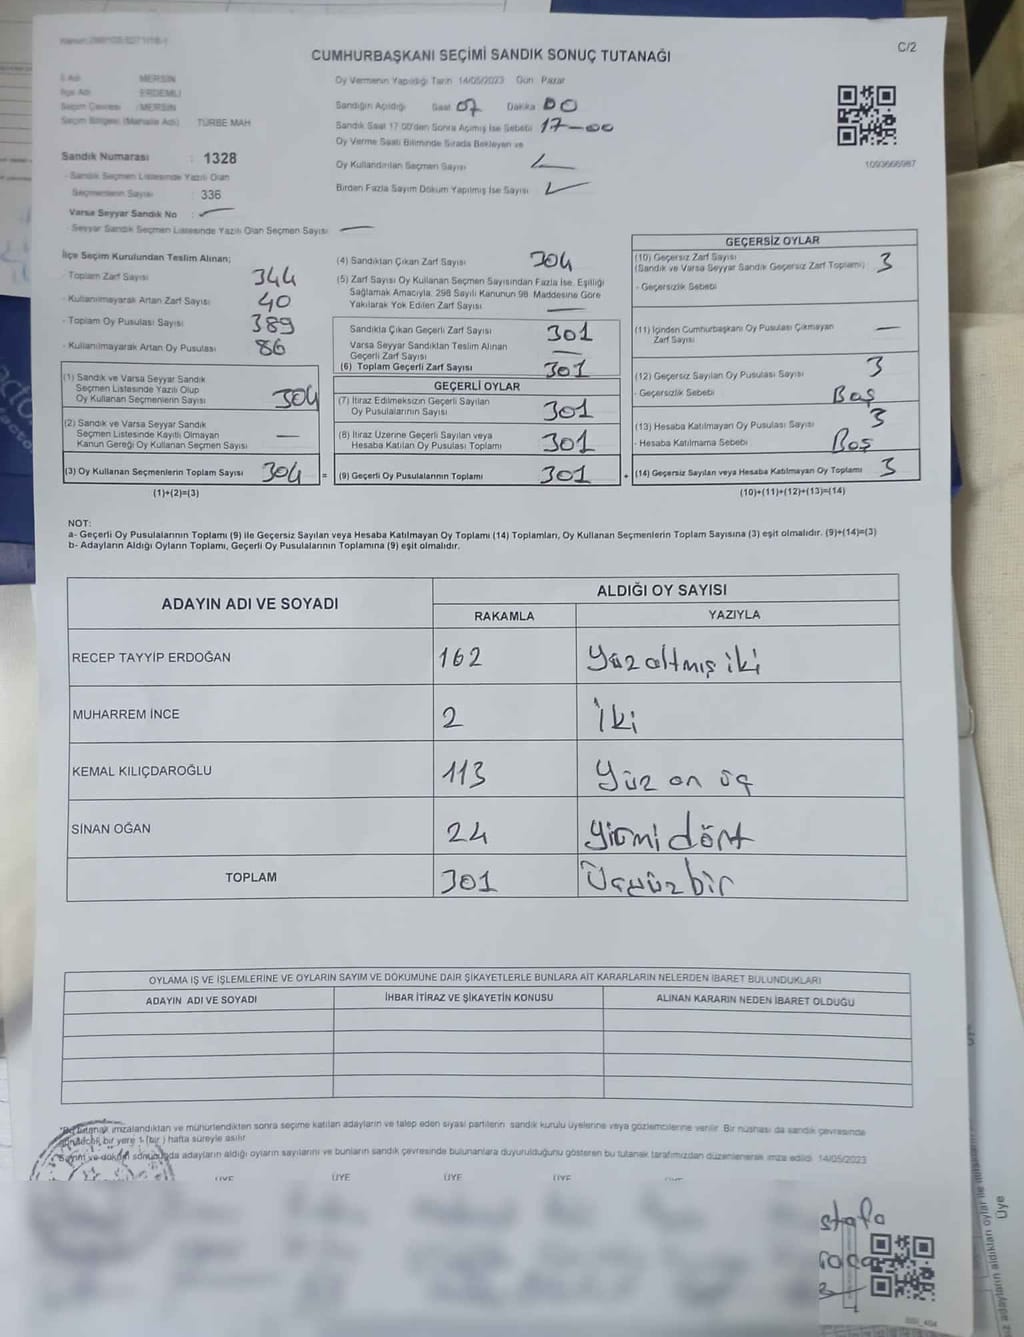 C/2
CUMHURBAŞKANI SEÇİMİ SANDIK SONUÇ TUTANAĞI
İl Adı MERSİN
İlçe Adı ERDEMLİ
Seçim Çevresi : MERSİN
Seçim Bölgesi (Mahalle Adı) TÜRBE MAH
Sandık Numarası : 1328
- Sandık Seçmen Listesinde Yazılı Olan
Seçmenlerin Sayısı : 336
Varsa Seyyar Sandık No :
- Seyyar Sandık Seçmen Listesinde Yazılı Olan Seçmen Sayısı
Oy Vermenin Yapıldığı Tarih 14/05/2023 Gün Pazar
Sandığın Açıldığı Saat 07 Dakika 00
Sandık Saat 17:00'den Sonra Açılmış İse Sebebi 17-00
Oy Verme Saati Bitiminde Sırada Bekleyen ve
Oy Kullandırılan Seçmen Sayısı
Birden Fazla Sayım Döküm Yapılmış İse Sayısı
1093666987
İlçe Seçim Kurulundan Teslim Alınan;
- Toplam Zarf Sayısı 344
- Kullanılmayarak Artan Zarf Sayısı 40
- Toplam Oy Pusulası Sayısı 389
- Kullanılmayarak Artan Oy Pusulası 86
(1) Sandık ve Varsa Seyyar Sandık
Seçmen Listesinde Yazılı Olup
Oy Kullanan Seçmenlerin Sayısı 304
(2) Sandık ve Varsa Seyyar Sandık
Seçmen Listesinde Kayıtlı Olmayan
Kanun Gereği Oy Kullanan Seçmen Sayısı —
(3) Oy Kullanan Seçmenlerin Toplam Sayısı 304 =
(1)+(2)=(3)
(4) Sandıktan Çıkan Zarf Sayısı 304
(5) Zarf Sayısı Oy Kullanan Seçmen Sayısından Fazla İse, Eşitliği
Sağlamak Amacıyla, 298 Sayılı Kanunun 98. Maddesine Göre
Yakılarak Yok Edilen Zarf Sayısı —
Sandıkta Çıkan Geçerli Zarf Sayısı 301
Varsa Seyyar Sandıktan Teslim Alınan
Geçerli Zarf Sayısı —
(6) Toplam Geçerli Zarf Sayısı 301
GEÇERLİ OYLAR
(7) İtiraz Edilmeksizin Geçerli Sayılan
Oy Pusulalarının Sayısı 301
(8) İtiraz Üzerine Geçerli Sayılan veya
Hesaba Katılan Oy Pusulası Toplamı 301
(9) Geçerli Oy Pusulalarının Toplamı 301 +
GEÇERSİZ OYLAR
(10) Geçersiz Zarf Sayısı
(Sandık ve Varsa Seyyar Sandık Geçersiz Zarf Toplamı) 3
- Geçersizlik Sebebi
(11) İçinden Cumhurbaşkanı Oy Pusulası Çıkmayan
Zarf Sayısı —
(12) Geçersiz Sayılan Oy Pusulası Sayısı 3
- Geçersizlik Sebebi Boş
(13) Hesaba Katılmayan Oy Pusulası Sayısı 3
- Hesaba Katılmama Sebebi Boş
(14) Geçersiz Sayılan veya Hesaba Katılmayan Oy Toplamı 3
(10)+(11)+(12)+(13)=(14)
NOT:
a- Geçerli Oy Pusulalarının Toplamı (9) ile Geçersiz Sayılan veya Hesaba Katılmayan Oy Toplamı (14) Toplamları, Oy Kullanan Seçmenlerin Toplam Sayısına (3) eşit olmalıdır. (9)+(14)=(3)
b- Adayların Aldığı Oyların Toplamı, Geçerli Oy Pusulalarının Toplamına (9) eşit olmalıdır.
ADAYIN ADI VE SOYADI
ALDIĞI OY SAYISI
RAKAMLA YAZIYLA
RECEP TAYYİP ERDOĞAN 162 Yüz altmış iki
MUHARREM İNCE 2 İki
KEMAL KILIÇDAROĞLU 113 Yüz on üç
SİNAN OĞAN 24 Yirmi dört
TOPLAM 301 Üçyüz bir
OYLAMA İŞ VE İŞLEMLERİNE VE OYLARIN SAYIM VE DÖKÜMÜNE DAİR ŞİKAYETLERLE BUNLARA AİT KARARLARIN NELERDEN İBARET BULUNDUKLARI
ADAYIN ADI VE SOYADI İHBAR İTİRAZ VE ŞİKAYETİN KONUSU ALINAN KARARIN NEDEN İBARET OLDUĞU
tutanak imzalandıktan ve mühürlendikten sonra seçime katılan adayların ve talep eden siyasi partilerin sandık kurulu üyelerine veya gözlemcilerine verilir. Bir nüshası da sandık çevresinde
bir yere 1 (bir) hafta süreyle asılır.
Sayım ve döküm sonucunda adayların aldığı oyların sayılarını ve bunların sandık çevresinde bulunanlara duyurulduğunu gösteren bu tutanak tarafımızdan düzenlenerek imza edildi. 14/05/2023
ÜYE ÜYE ÜYE ÜYE
stafa
3
Üye